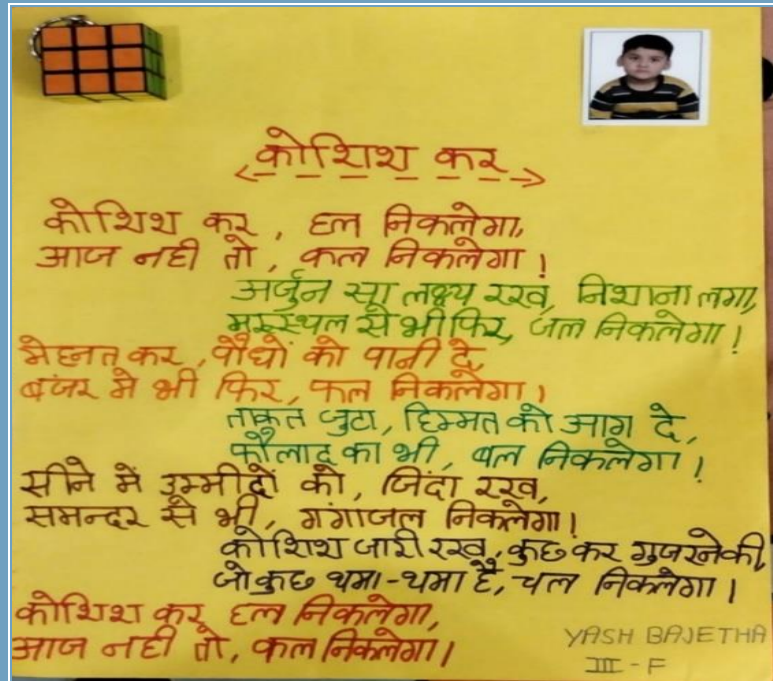 कोशिश कर
कोशिश कर, हल निकलेगा,
आज नही तो, कल निकलेगा!
अर्जुन सा लक्ष्य रख, निशाना लगा,
मरुस्थल से भी फिर, जल निकलेगा!
मेहनत कर, पौधों को पानी दे,
बंजर मे भी फिर, फल निकलेगा।
ताकत जुटा, हिम्मत को आग दे,
फौलाद का भी, बल निकलेगा!
सीने में उम्मीदों को, जिंदा रख,
समन्दर से भी, गंगाजल निकलेगा!
कोशिश जारी रख, कुछ कर गुजरने की,
जो कुछ थमा-थमा है, चल निकलेगा।
कोशिश कर, हल निकलेगा,
आज नही तो, कल निकलेगा।
YASH BAJETHA
III - F